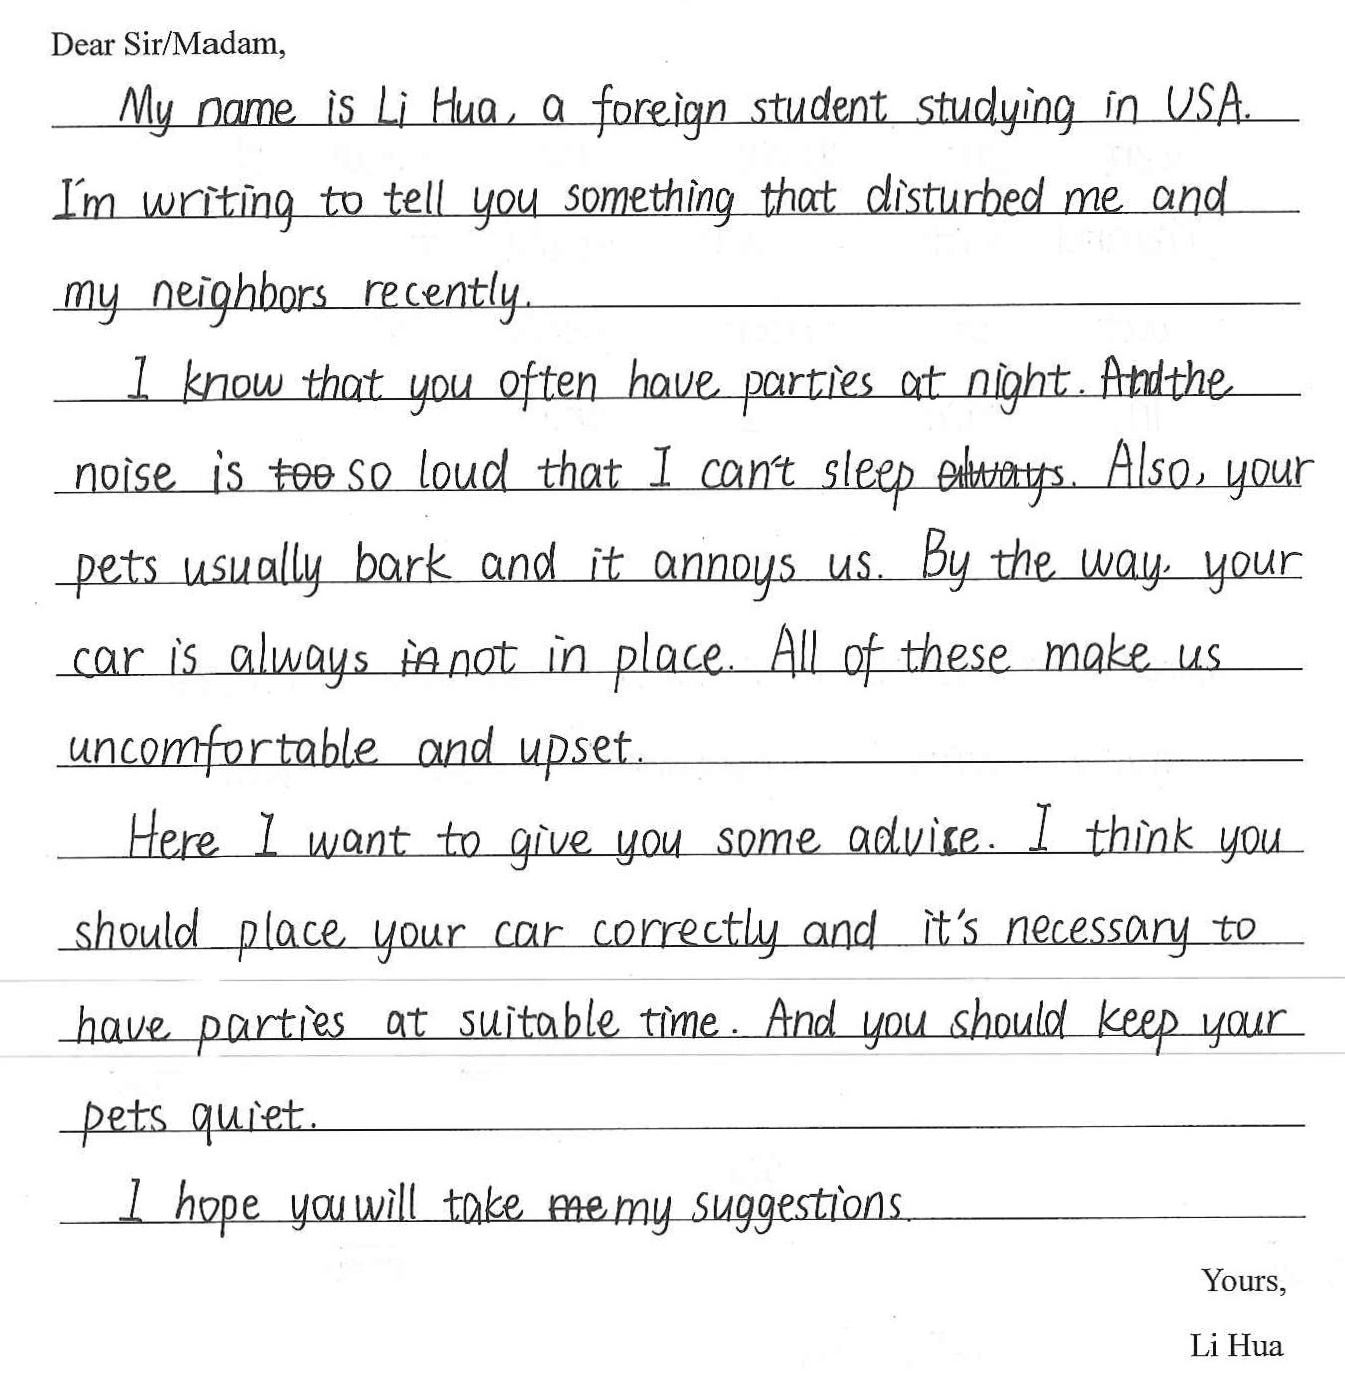 Dear Sir/Madam,
My name is Li Hua, a foreign student studying in USA.
I'm writing to tell you something that disturbed me and
my neighbors recently.
I know that you often have parties at night. And the
noise is too so loud that I can't sleep always. Also, your
pets usually bark and it annoys us. By the way, your
car is always in not in place. All of these make us
uncomfortable and upset.
Here I want to give you some advice. I think you
should place your car correctly and it's necessary to
have parties at suitable time. And you should keep your
pets quiet.
I hope you will take me my suggestions.
Yours,
Li Hua